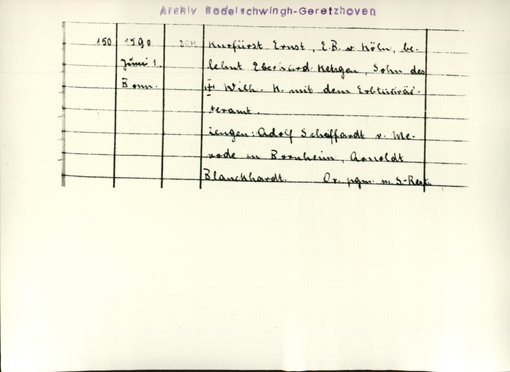 Archiv Bodelschwingh-Geretzhoven
150 1590 Kurfürst Ernst, E.B. v. Köln, be-
Juni 1. lehnt Eberhard Ketzgen, Sohn des
Bonn. Wilh. K. mit dem Erbtürwär-
teramt.
Zeugen: Adolf Schaffardt v. Me-
rode zu Bornheim, Arnoldt
Blanckhardt. Or. pgm. m. S-Rest.